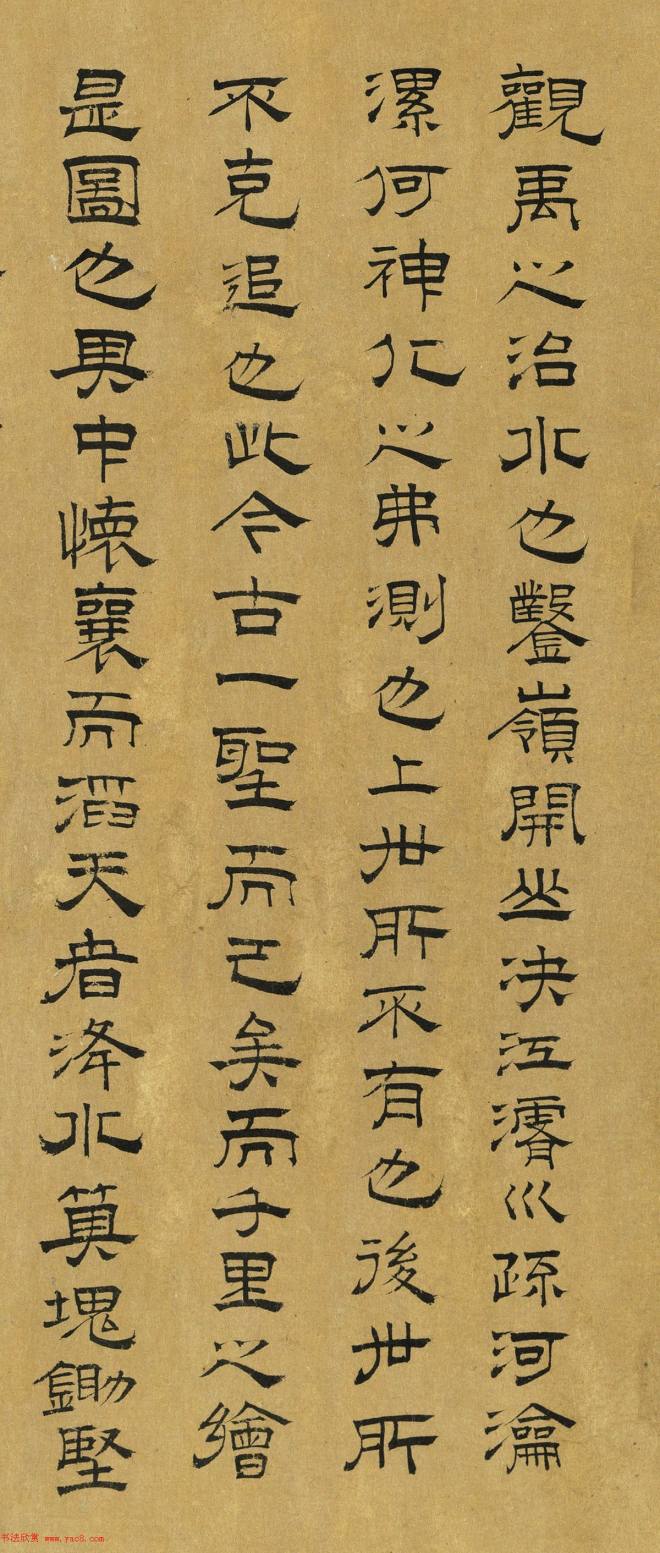 觀禹之治水也鑿嶺開山決江濬巛疏河瀹
漯何神化之弗測也上世所不有也後世所
不克追也此今古一聖而已矣而千里之繪
是圖也其中懷襄而滔天者洚水箕塊鋤堅
书法欣赏 www.yac8.com